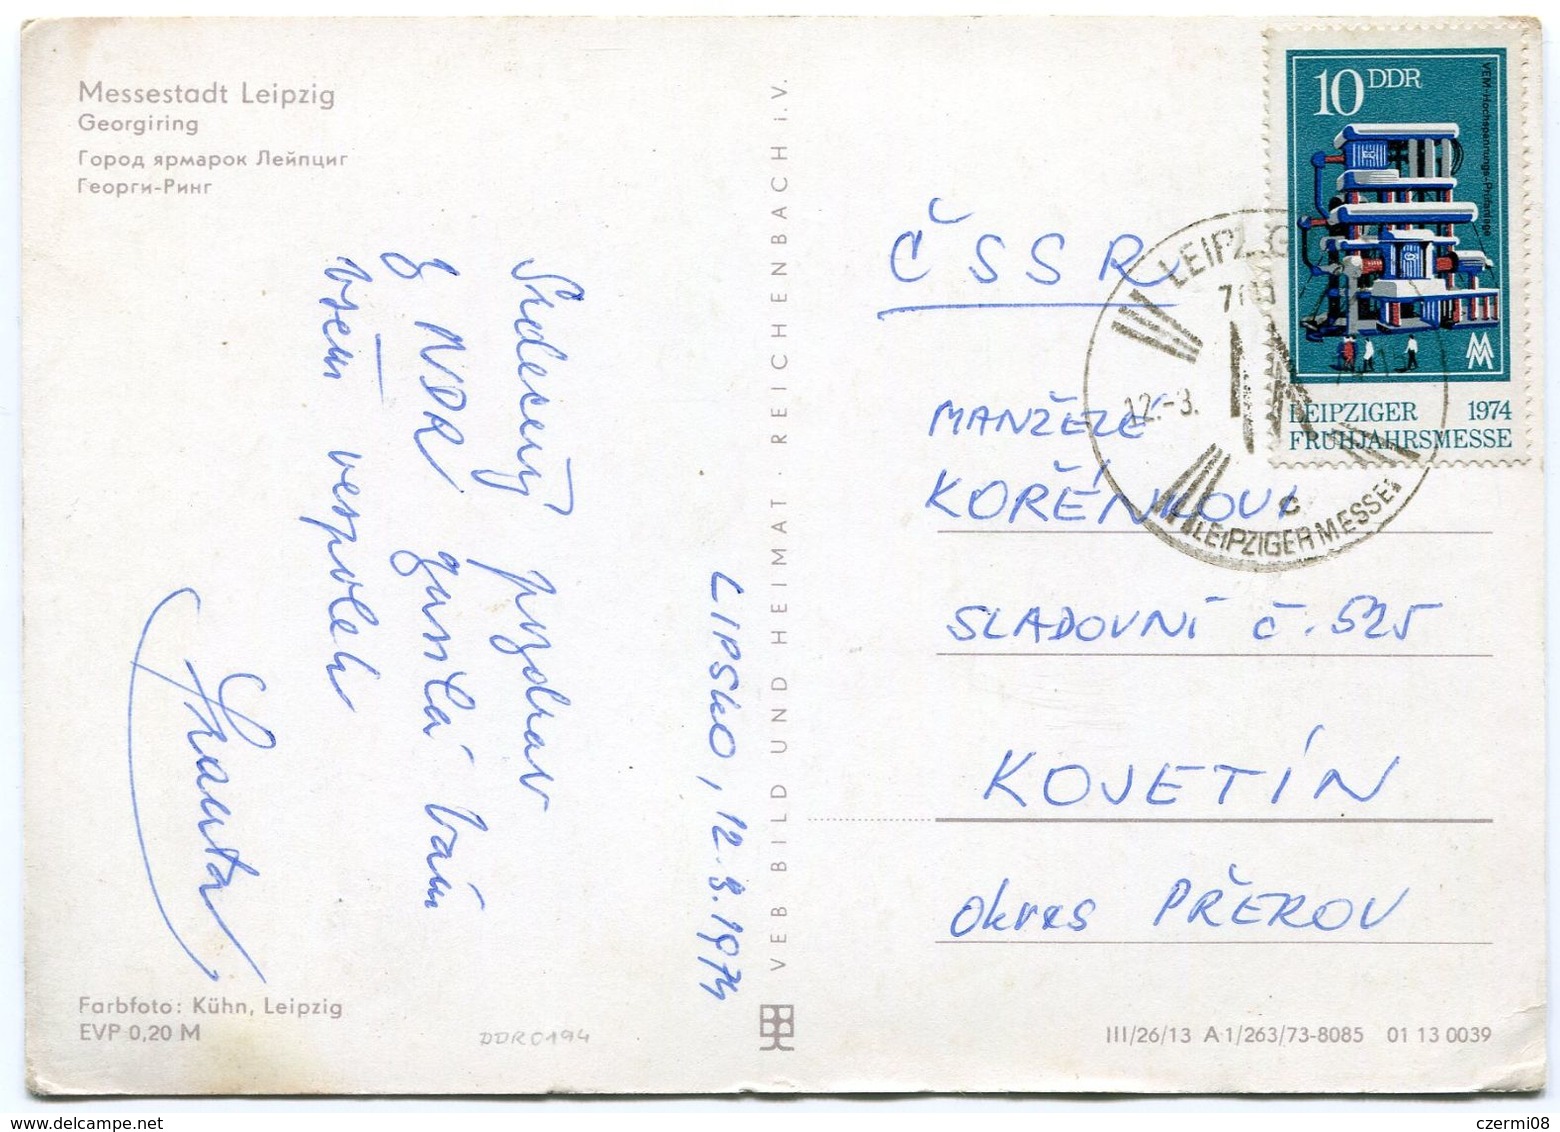 Messestadt Leipzig
Georgiring
Город ярмарок Лейпциг
Георги-Ринг
Srdečný pozdrav
z NDR zasílá vám
všem vespolek
LIPSKO, 12.3.1974
Farbfoto: Kühn, Leipzig
EVP 0,20 M
DDR0194
VEB BILD UND HEIMAT REICHENBACH i.V.
10 DDR
VEM-Hochspannungs-Prüfanlage
MM
LEIPZIGER 1974
FRÜHJAHRSMESSE
LEIPZIG
12.-3.
C
LEIPZIGER MESSE
ČSSR
MANŽELÉ
KOŘÍNKOVI
SLADOVNÍ č. 525
KOJETÍN
okres PŘEROV
III/26/13 A·1/263/73-8085 01 13 0039
czermi08